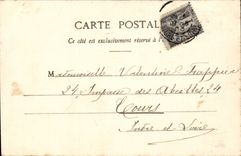 CARTE POSTALE
Ce côté est exclusivement réservé à l'
Mademoiselle Valentine
24, Impasse des Abeilles, 24
Tours
Indre et Loire